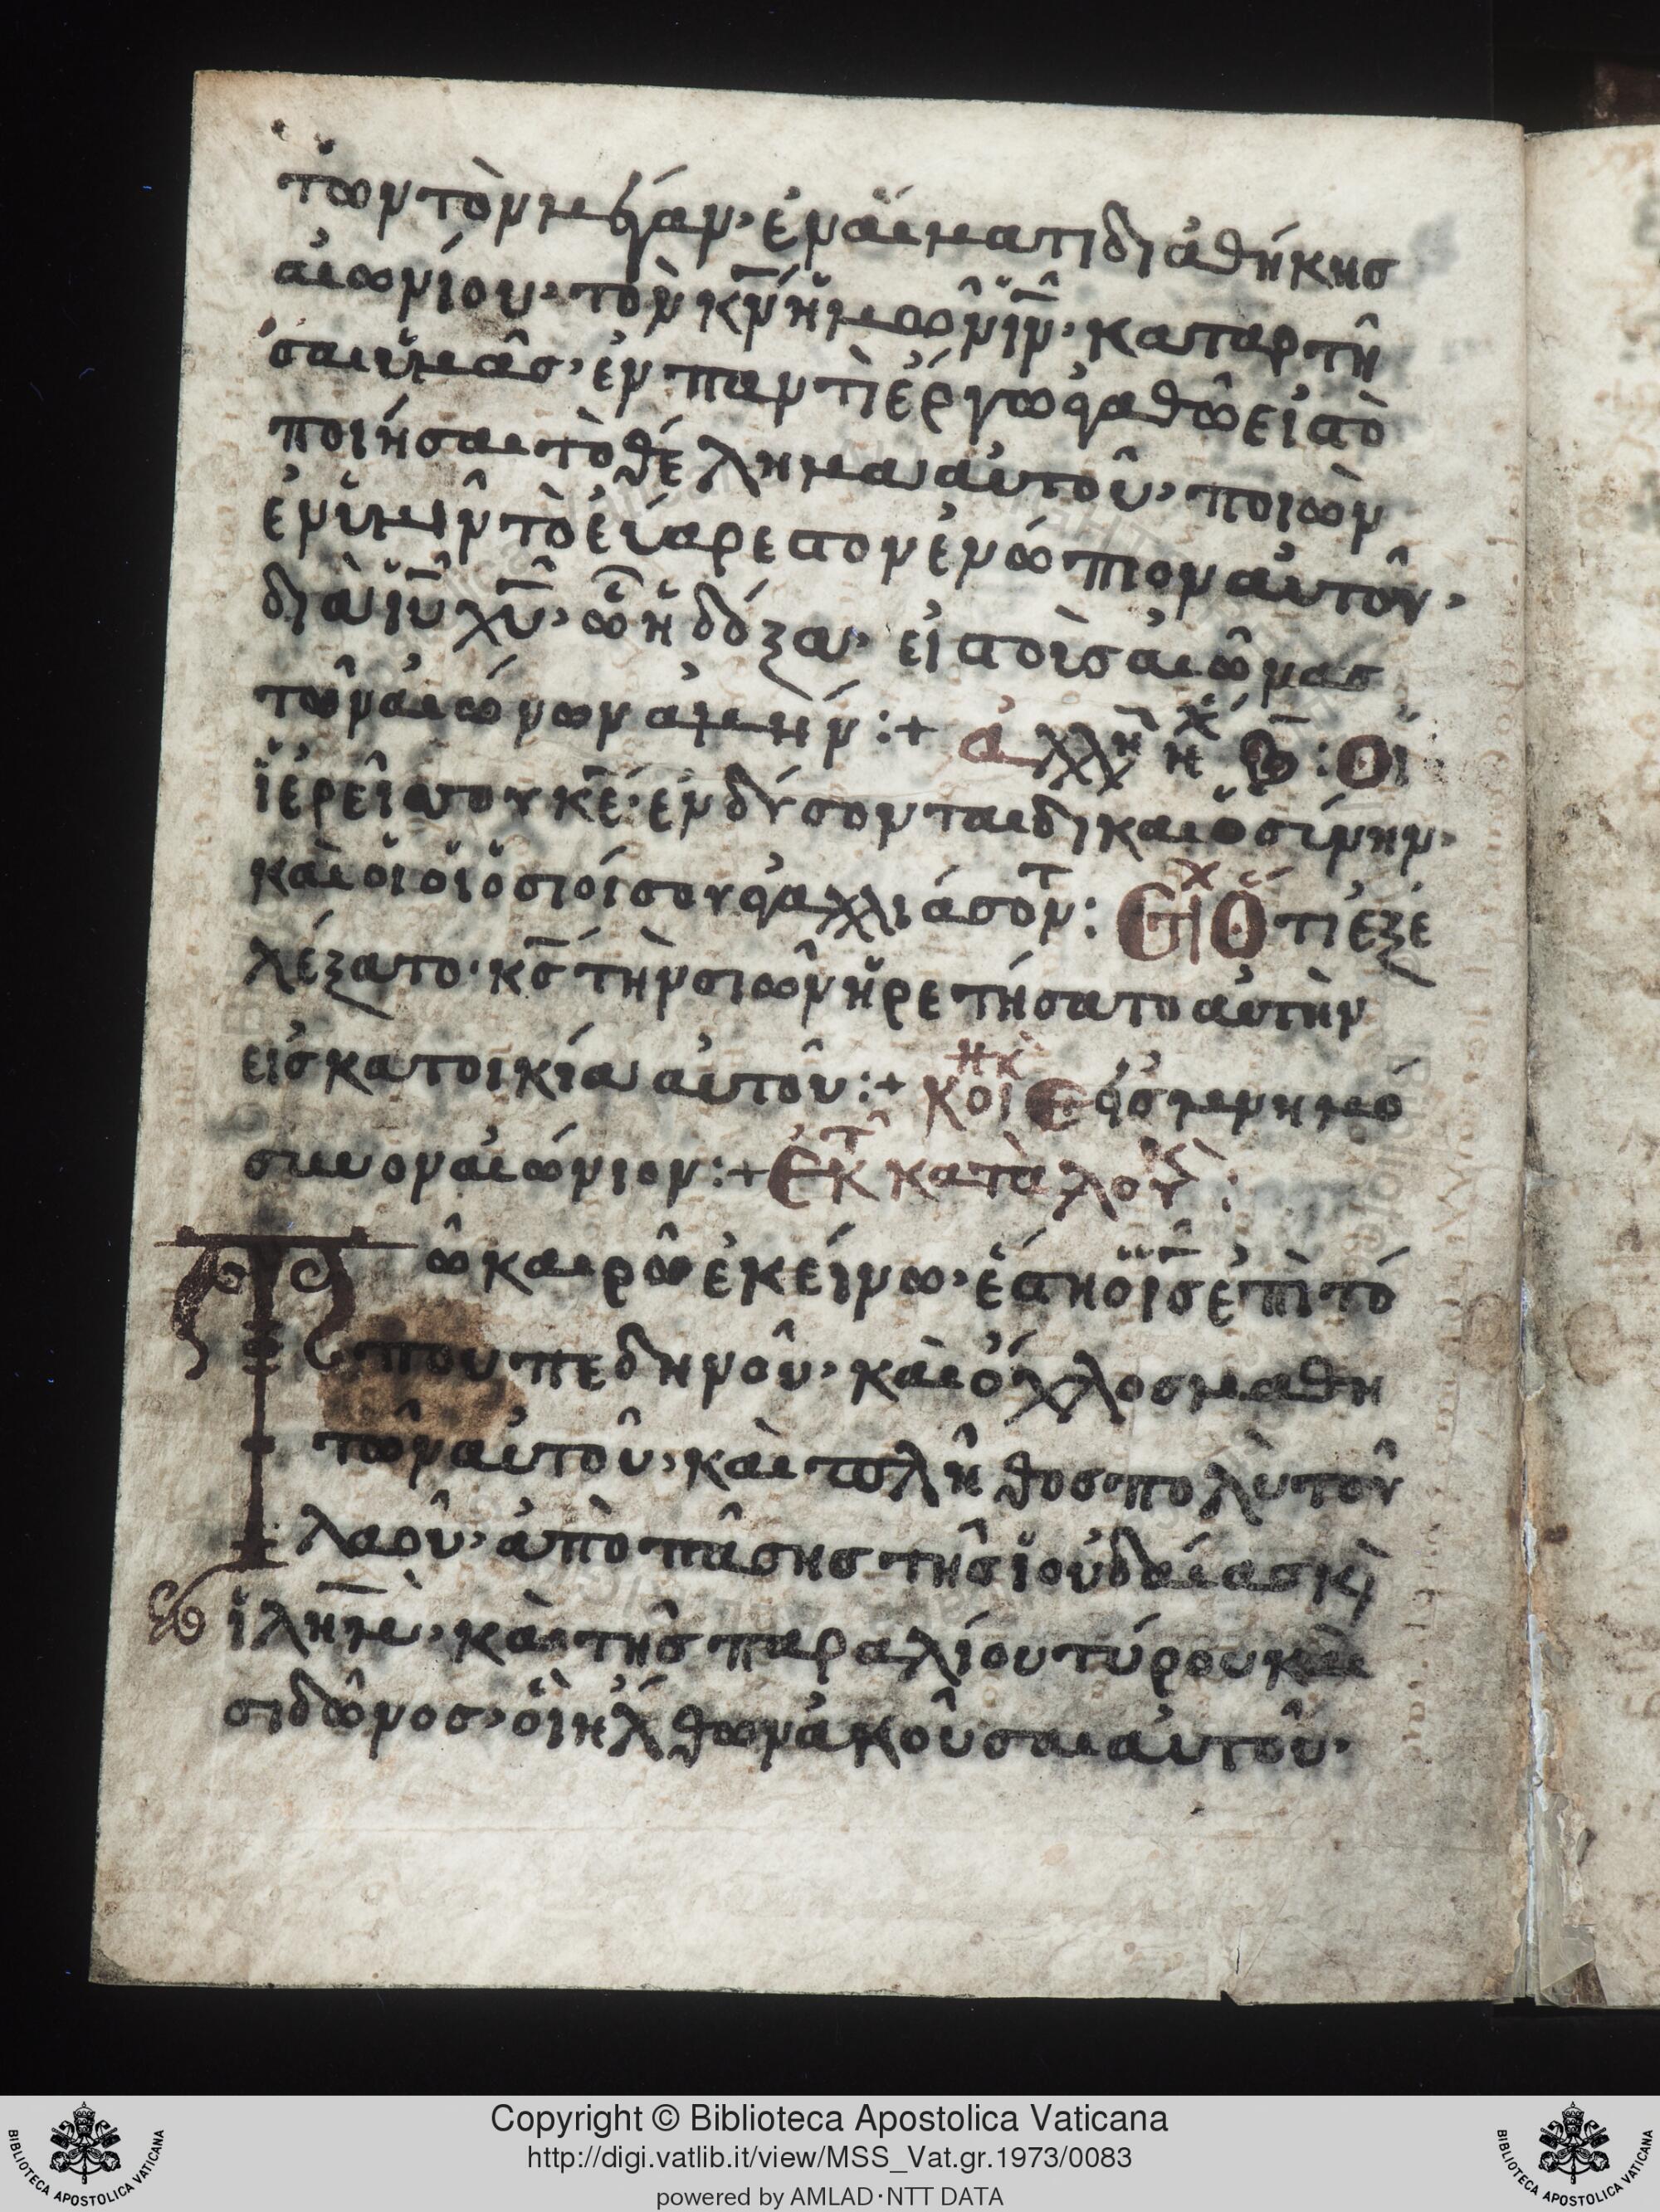 τῶν τὸν μέγαν· ἐν αἵματι διαθήκης
αἰωνίου· τὸν κ̅ν̅ ἡμῶν ι̅ν̅· καταρτῆ
σαι ὑμᾶς· ἐν παντὶ ἔργω ἀγαθῶ εἰς τὸ
ποιῆσαι τὸ θέλημα αὐτοῦ· ποιῶν
ἐν ὑμῖν τὸ εὐάρεστον ἐνώπιον αὐτοῦ·
διὰ ι̅υ̅ χ̅υ̅· ὧ ἡ δόξα· εἰς τοὺς αἰῶνας
τῶν αἰώνων ἀμήν :+ ἀλλη : Οἱ
ἱερεῖς σου κ̅ε̅· ἐνδύσονται δικαιοσίνην·
καὶ οἱ οἱ ὅσιοί σου ἀγαλλιάσοντ : Στιχ Ὅτι ἐξε
λέξατο· κ̅ς̅ τὴν σιὼν ἡρετήσατο αὐτὴν
εἰς κατοικία αὐτοῦ :+ κοι Εἰς μνημό
συνον αἰώνιον :+ Ἐκ τ κατὰ λουκ :
Τῶ καιρῶ ἐκείνω· ἔστη ὁ ι̅ς̅ ἐπὶ τό
που πεδηνοῦ· καὶ ὄχλος μαθη
τῶν αὐτοῦ· καὶ πλῆθος πολὺ τοῦ
λαοῦ· ἀπὸ πάσης τῆς ἰουδαίας κ̀
ἰλη̅μ̅· καὶ τῆς παραλίου τύρου καὶ
σιδῶνος· οἳ ἦλθων ἀκοῦσαι αὐτοῦ·
Copyright © Biblioteca Apostolica Vaticana
http://digi.vatlib.it/view/MSS_Vat.gr.1973/0083
powered by AMLAD·NTT DATA
BIBLIOTECA APOSTOLICA VATICANA
BIBLIOTECA APOSTOLICA VATICANA